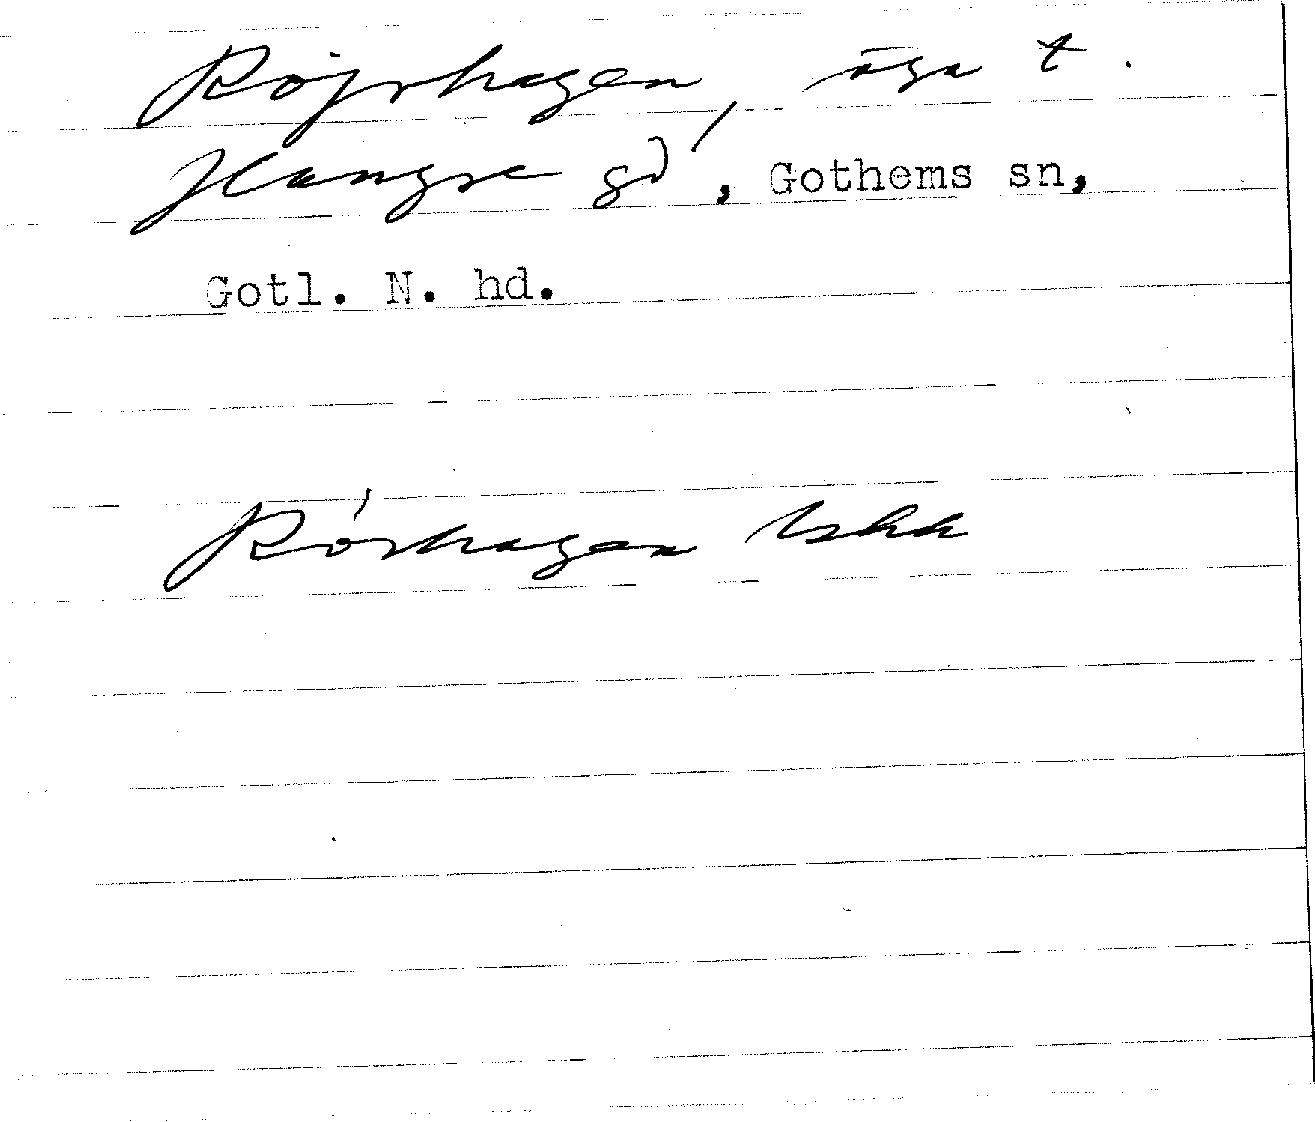 Röjrhagen, äga t.
Hangre gd, Gothems sn,
Gotl. N. hd.
Rörhagen Iskk